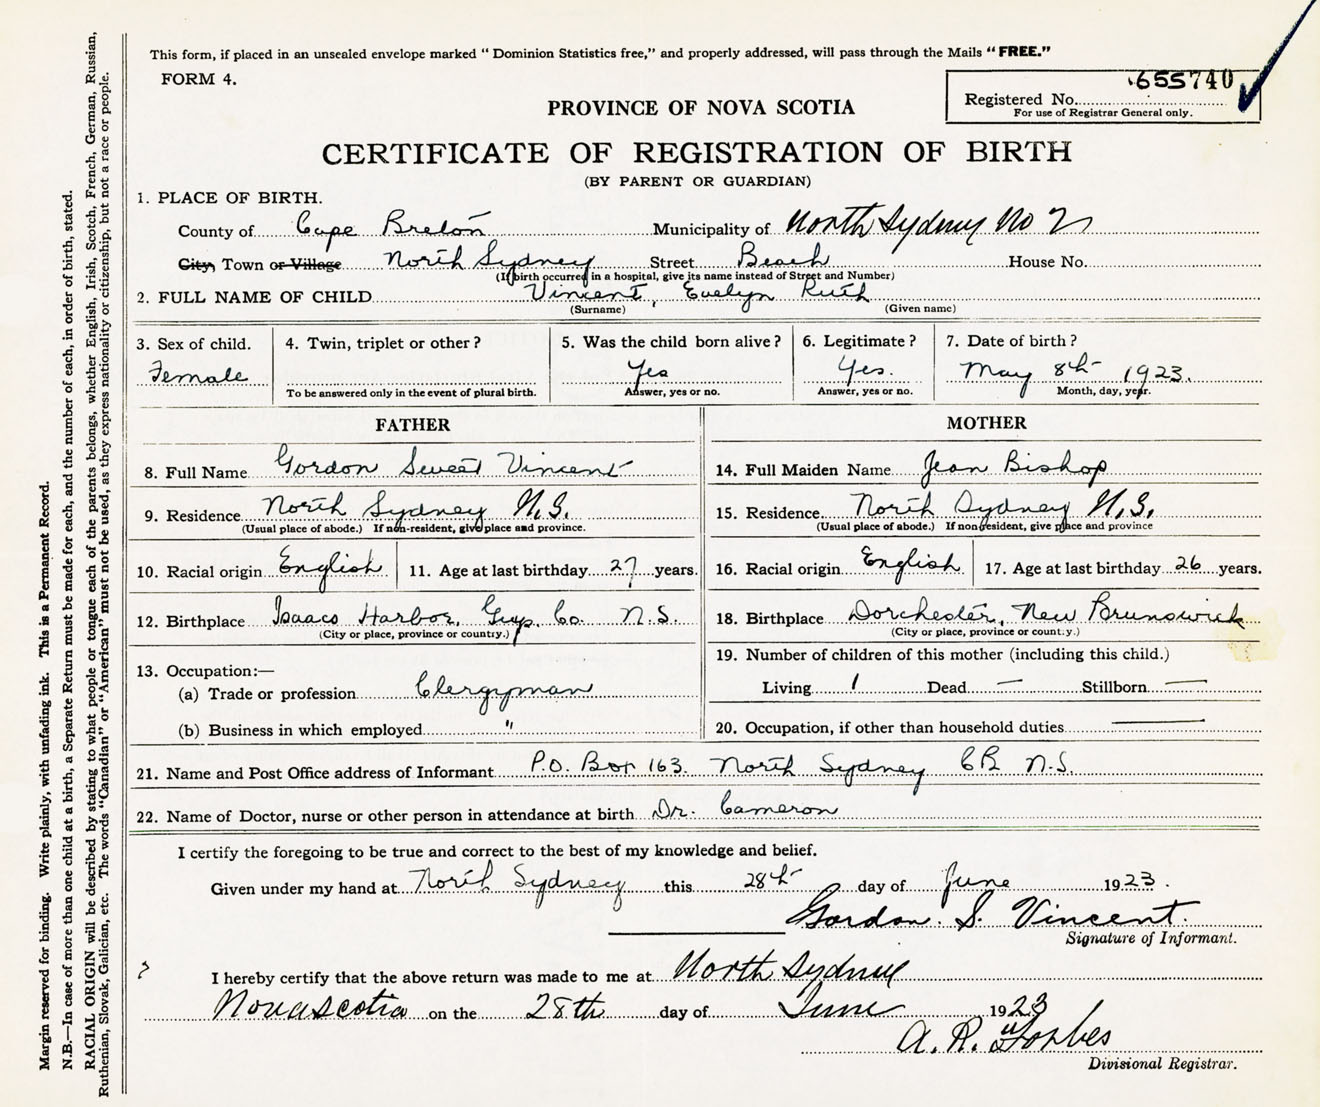 This form, if placed in an unsealed envelope marked " Dominion Statistics free," and properly addressed, will pass through the Mails "FREE."
FORM 4.
655740
Registered No.
For use of Registrar General only.
PROVINCE OF NOVA SCOTIA
CERTIFICATE OF REGISTRATION OF BIRTH
(BY PARENT OR GUARDIAN)
1. PLACE OF BIRTH.
County of Cape Breton Municipality of North Sydney No 2
City, Town or Village North Sydney Street Beach House No.
(If birth occurred in a hospital, give its name instead of Street and Number)
2. FULL NAME OF CHILD Vincent, Evelyn Ruth
(Surname) (Given name)
3. Sex of child. 4. Twin, triplet or other? 5. Was the child born alive? 6. Legitimate? 7. Date of birth?
Female Yes Yes. May 8th 1923.
To be answered only in the event of plural birth. Answer, yes or no. Answer, yes or no. Month, day, year.
FATHER MOTHER
8. Full Name Gordon Sweet Vincent 14. Full Maiden Name Jean Bishop
9. Residence North Sydney N.S. 15. Residence North Sydney N.S.
(Usual place of abode.) If non-resident, give place and province. (Usual place of abode.) If nonresident, give place and province
10. Racial origin English 11. Age at last birthday 27 years. 16. Racial origin English 17. Age at last birthday 26 years.
12. Birthplace Isaacs Harbor, Guy. Co. N.S. 18. Birthplace Dorchester, New Brunswick
(City or place, province or country.) (City or place, province or country.)
19. Number of children of this mother (including this child.)
13. Occupation:—
Living 1 Dead — Stillborn —
(a) Trade or profession Clergyman
(b) Business in which employed " 20. Occupation, if other than household duties —
21. Name and Post Office address of Informant P.O. Box 163. North Sydney CB N.S.
22. Name of Doctor, nurse or other person in attendance at birth Dr. Cameron
I certify the foregoing to be true and correct to the best of my knowledge and belief.
Given under my hand at North Sydney this 28th day of June 1923.
Gordon. S. Vincent.
Signature of Informant.
I hereby certify that the above return was made to me at North Sydney
Nova Scotia on the 28th day of June 1923
A. R. Forbes
Divisional Registrar.
Margin reserved for binding. Write plainly, with unfading ink. This is a Permanent Record.
N.B.—In case of more than one child at a birth, a Separate Return must be made for each, and the number of each, in order of birth, stated.
RACIAL ORIGIN will be described by stating to what people or tongue each of the parents belongs, whether English, Irish, Scotch, French, German, Russian,
Ruthenian, Slovak, Galician, etc. The words "Canadian" or "American" must not be used, as they express nationality or citizenship, but not a race or people.